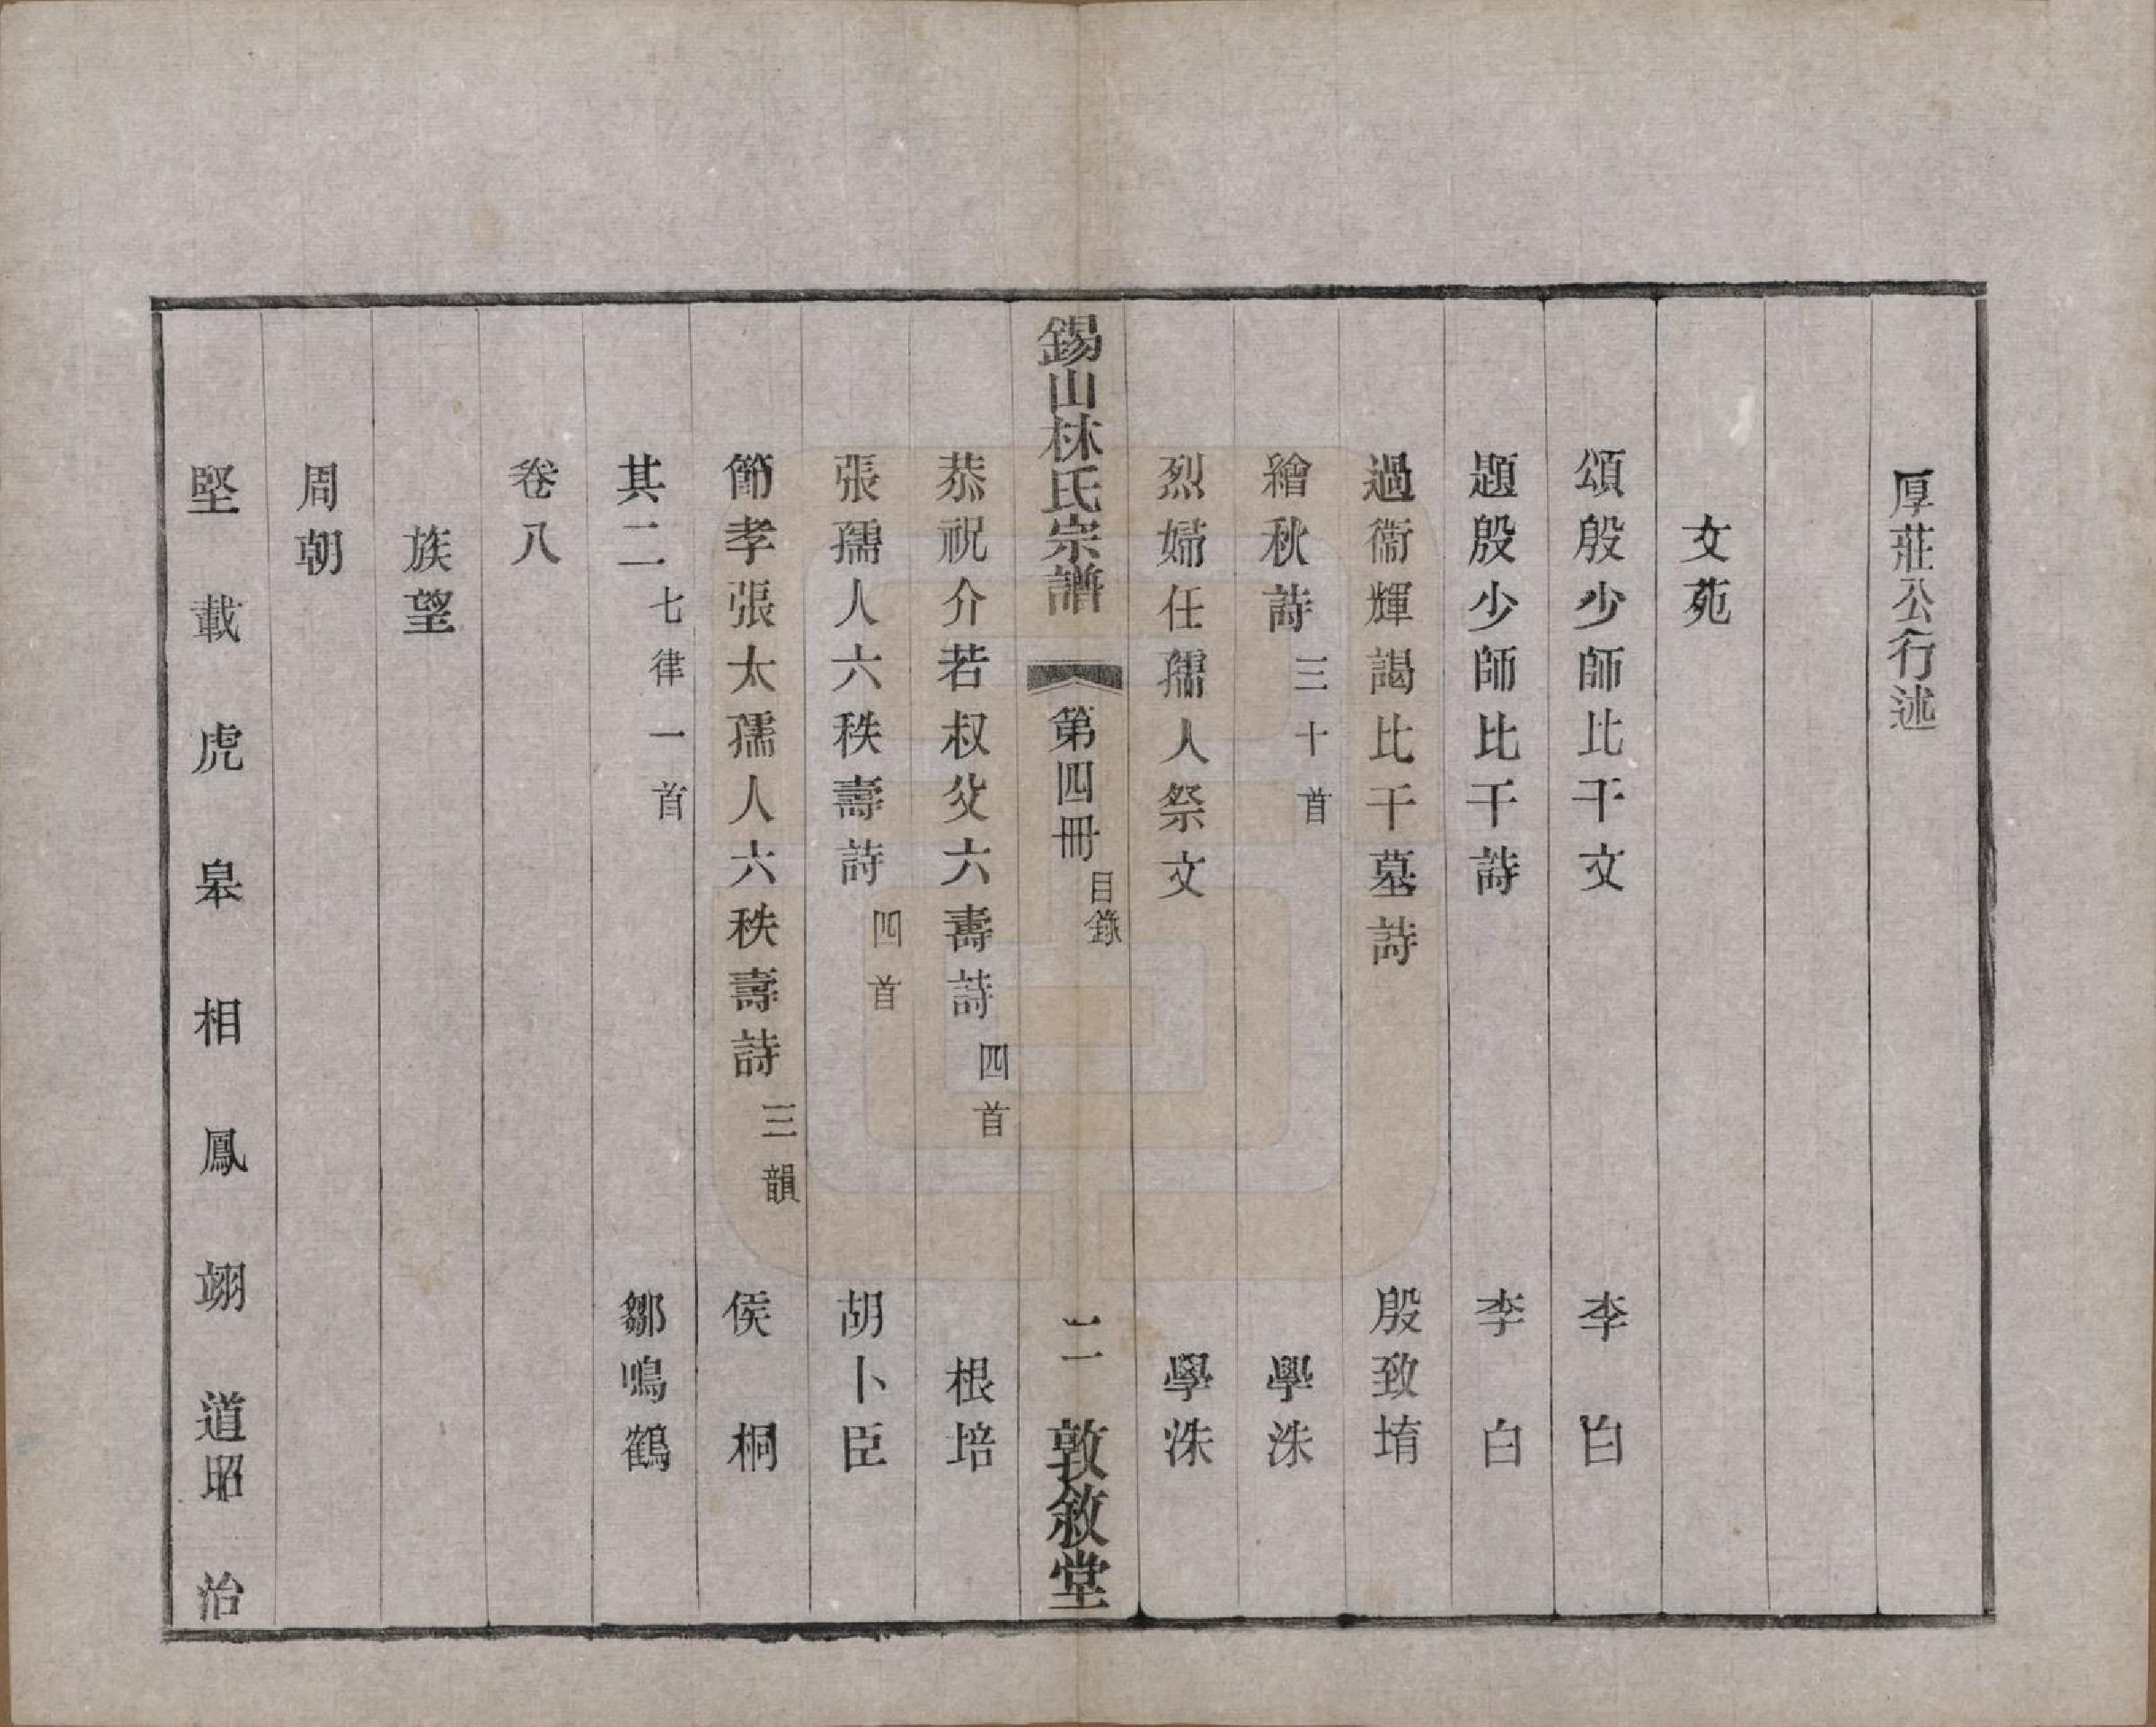 厚莊公行述
文苑
頌殷少師比干文 李白
題殷少師比干詩 李白
過衞輝謁比干墓詩 殷致堉
繪秋詩 三十首 學洙
烈婦任孺人祭文 學洙
錫山林氏宗譜 第四冊 目錄 二 敦敘堂
恭祝介若叔父六壽詩 四首 根培
張孺人六秩壽詩 四首 胡卜臣
節孝張太孺人六秩壽詩 三韻 侯桐
其二 七律一首 鄒鳴鶴
卷八
族望
周朝
堅 載 虎 皋 相 鳳 翊 道昭 治